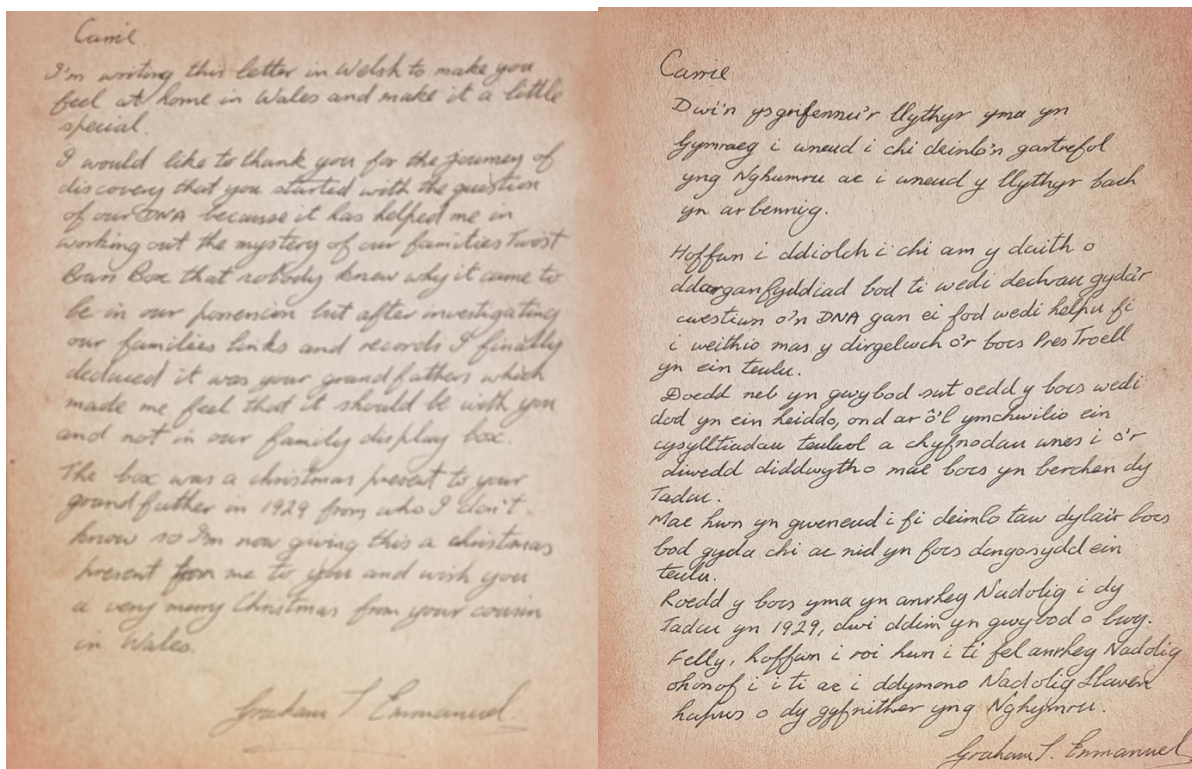 Carrie
I'm writing this letter in Welsh to make you
feel at home in Wales and make it a little
special.
I would like to thank you for the journey of
discovery that you started with the question
of our DNA because it has helped me in
working out the mystery of our families Twist
Brass Box that nobody knew why it came to
be in our possesion but after investigating
our families links and records I finally
deduced it was your grandfathers which
made me feel that it should be with you
and not in our family display box.
The box was a christmas present to your
grandfather in 1929 from who I don't
know so I'm now giving this a christmas
present from me to you and wish you
a very merry Christmas from your cousin
in Wales.
Graham T. Emmanuel
Carrie
Dwi'n ysgrifennu'r llythyr yma yn
Gymraeg i wneud i chi deimlo'n gartrefol
yng Nghumru ac i wneud y llythyr bach
yn arbennig.
Hoffwn i ddiolch i chi am y daith o
ddarganfyddiad bod ti wedi dechrau gyda'r
cwestiwn o'n DNA gan ei fod wedi helpu fi
i weithio mas y dirgelwch o'r bocs Pres Troell
yn ein teulu.
Doedd neb yn gwybod sut oedd y bocs wedi
dod yn ein heiddo, ond ar ôl ymchwilio ein
cysylltiadau teuluol a chyfnodau wnes i o'r
diwedd diddwytho mae bocs yn berchen dy
Tadcu.
Mae hwn yn gweneud i fi deimlo taw dylai'r bocs
bod gyda chi ac nid yn focs dangosydd ein
teulu.
Roedd y bocs yma yn anrheg Nadolig i dy
Tadcu yn 1929, dwi ddim yn gwybod o bwy.
Felly, hoffwn i roi hwn i ti fel anrheg Nadolig
ohonof i i ti ac i ddymuno Nadolig Llawen
hapus o dy gyfnither yng Nghymru.
Graham T. Emmanuel